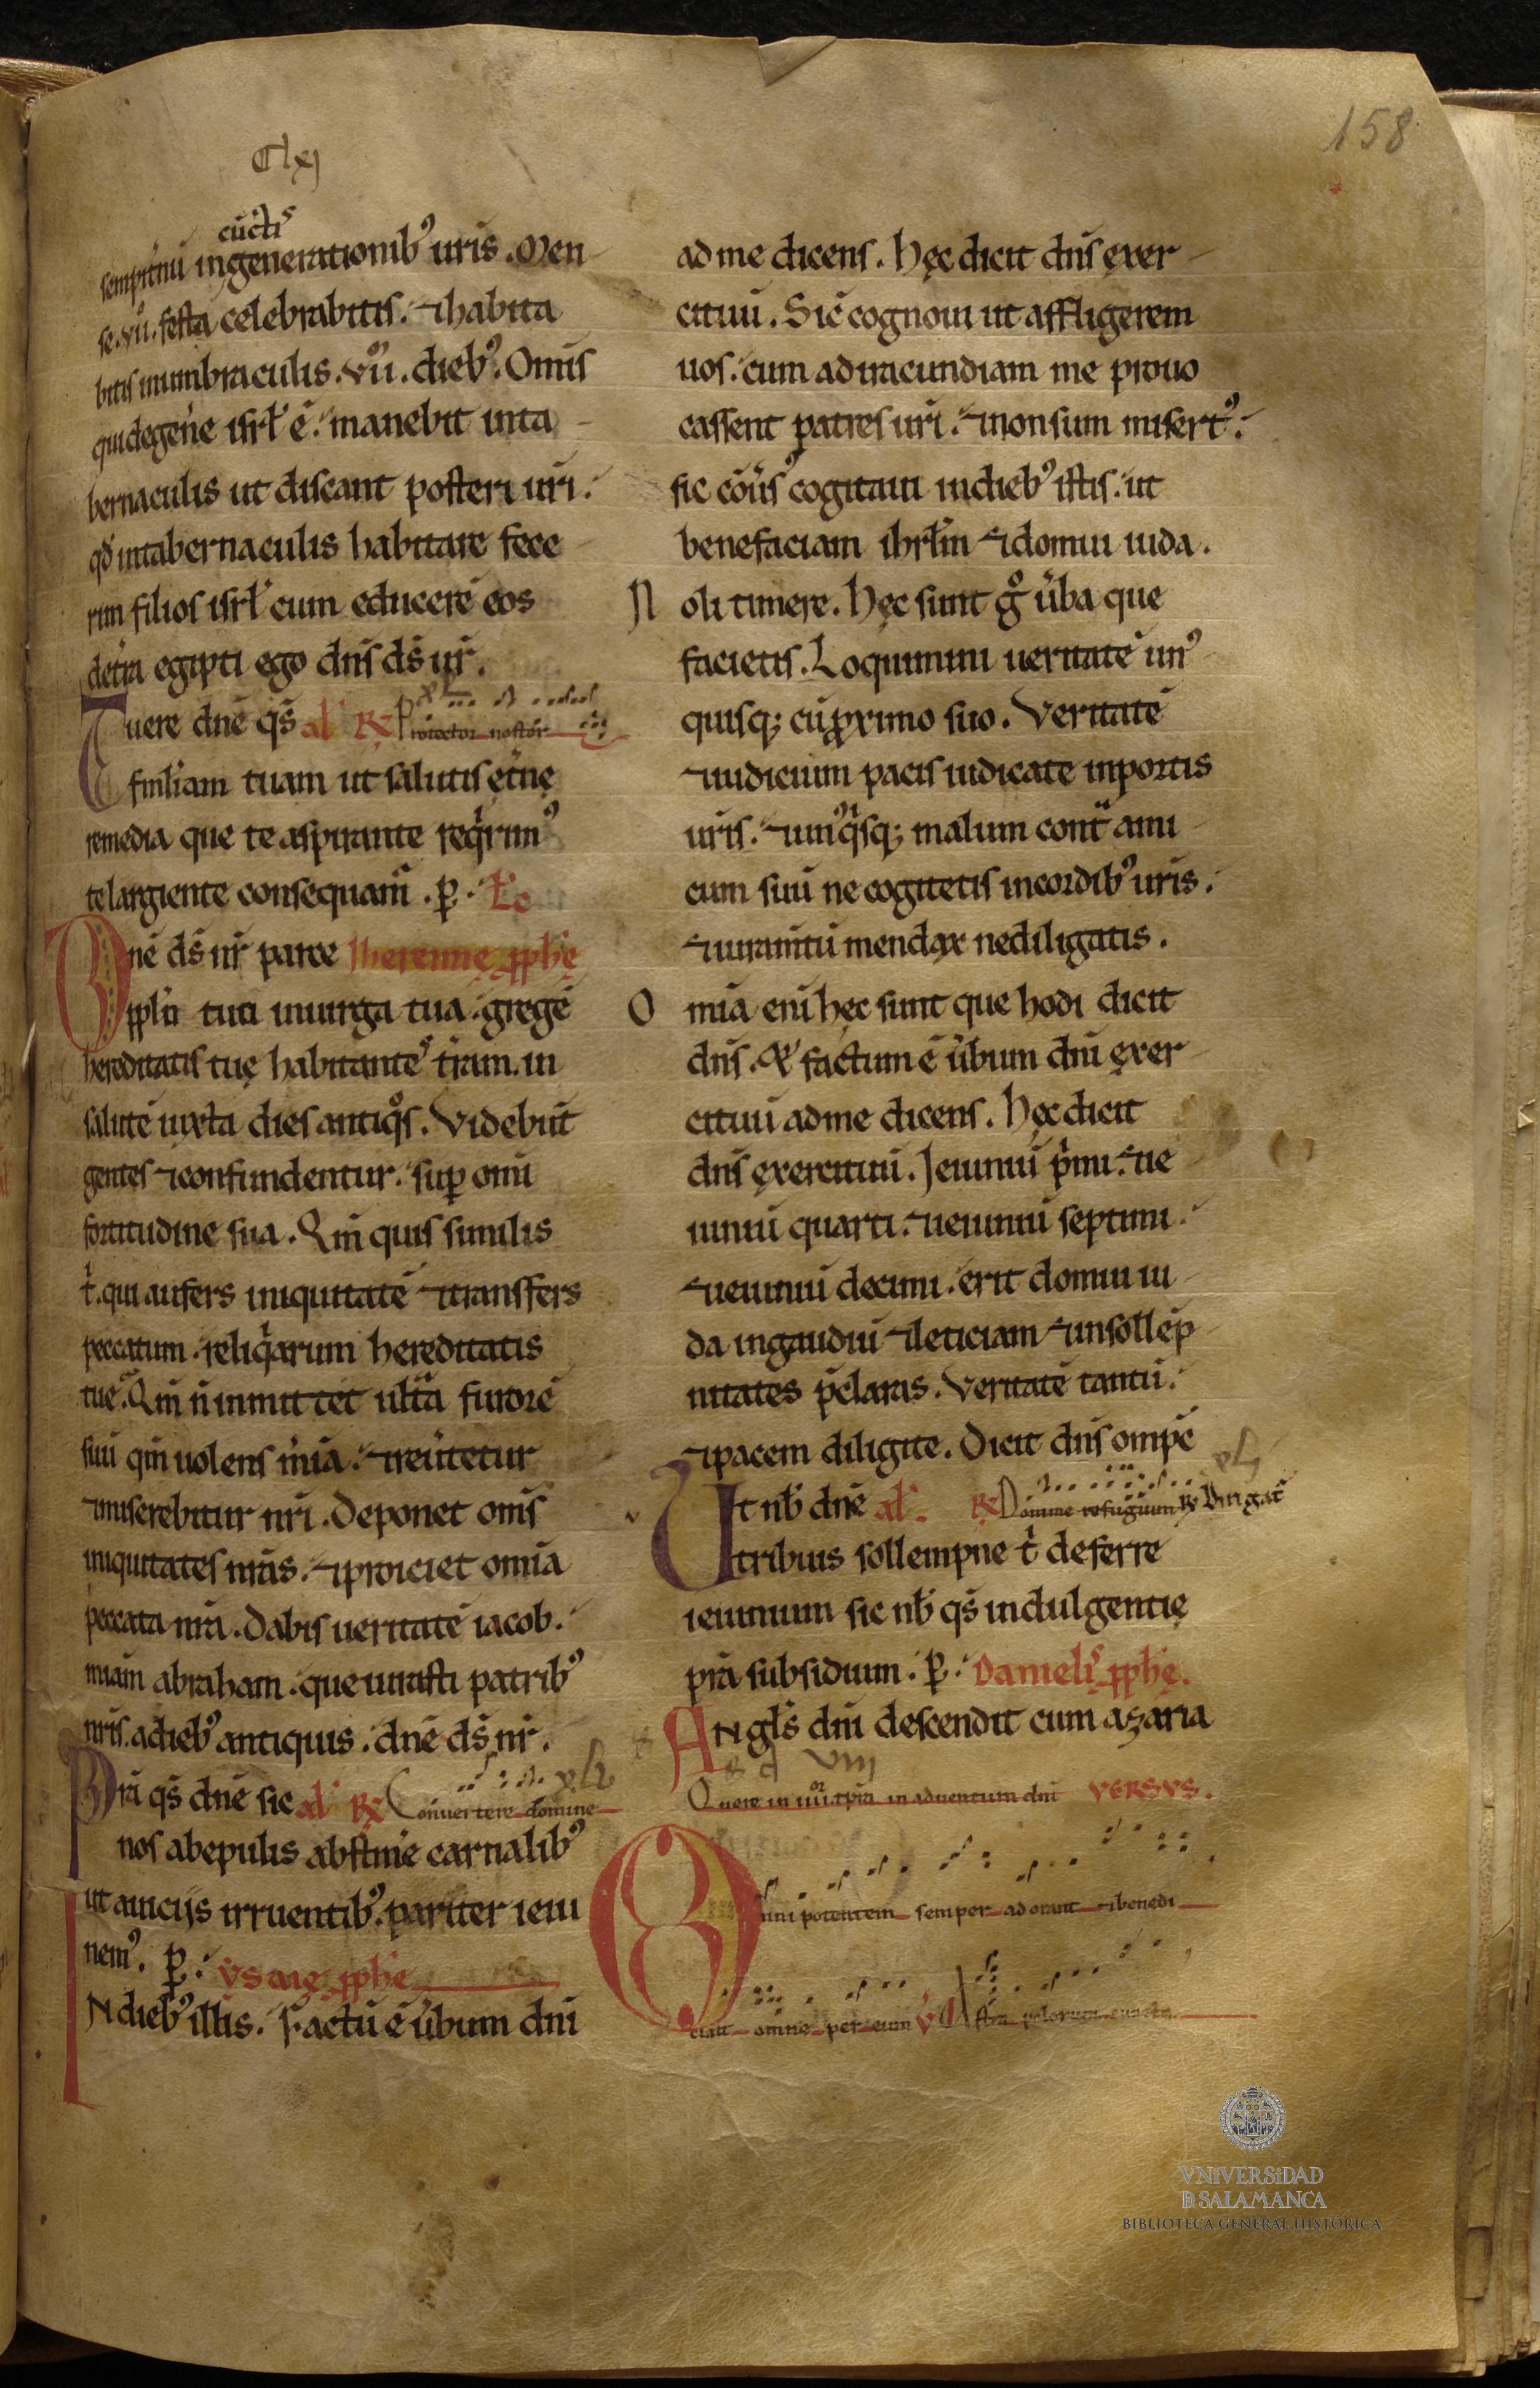 158
Clxj
cūctꝭ
sempit̄nū ingenerationibꝰ ur̄is. Men
se.vii. festa celebrabitis. ⁊ habita
bitis inumbraculis.vii. diebꝰ. Om̄is
qui degen̄e isrl̄ ē. manebit inta
bernaculis ut discant posteri ur̄i.
qd̄ intabernaculis habitare fece
rim filios isrl̄ cum educerē eos
det̄ra egipti ego dn̄s ds̄ ur̄.
Tuere dn̄e qs̄ al̓ R̄ Protector noster
fml̓iam tuam ut salutis et̄nę
remedia que te aspirante reqͥrimꝰ
te largiente consequam̄. p̱. Lc̄
Dn̄e ds̄ nr̄ pasce Iheremię pph̄ę
ppl̄m tuū inuirga tua. gregē
hereditatis tuę habitantē t̄ram. in
salutē iuxta dies antiqͦs. Videbunt
gentes ⁊ confundentur. sup̱ om̄i
fortitudine sua. Qm̄ quis similis
t̓. qui aufers iniquitatē ⁊ transfers
peccatum. reliqͣrum hereditatis
tuę. Qm̄ n̄ inmittet ult̄ furorē
suū qm̄ uolens m̄ia. ⁊ reūtetur
⁊ miserebitur nr̄i. Deponet om̄s
iniquitates nr̄as. ⁊ proiciet om̄ia
peccata nr̄a. Dabis ueritatē iacob.
mīam abraham. que iurasti patribꝰ
nr̄is. adiebꝰ antiquis. dn̄e ds̄ nr̄.
Pr̄a qs̄ dn̄e sic al̓ R̄ Conuertere domine
nos abepulis abstin̄e carnalibꝰ
ut auicijs irruentibꝰ. pariter ieiu
nemꝰ. p̱.
Ndiebꝰ illis. Factū ē ūbum dn̄i
ad me dicens. Hęc dicit dn̄s exer
cituū. Sic̄ cognoui ut affligerem
uos. cum adiracundiam me prouo
cassent patres ur̄i. ⁊ non sum misertꝰ.
sic cōūsꝰ cogitaui indiebꝰ istis. ut
benefaciam ihrl̄m ⁊ domui iuda.
Noli timere. Hęc sunt gͦ ūba que
facietis. Loquimini ueritatē unꝰ
quisq; cū p̱ximo suo. Veritatē
⁊ iudicium pacis iudicate inportis
ur̄is. ⁊ unꝰqͥsq; malum cont̄ ami
cum suū ne cogitetis incordibꝰ ur̄is.
⁊ iuram̄tū mendax nediligatis.
Om̄ia eni hęc sunt que hodi dicit
dn̄s. & factum ē ūbum dn̄i exer
cituū adme dicens. Hęc dicit
dn̄s exercituū. Ieiuniū pͥmi. ⁊ ie
iuniū quarti. ⁊ ieiuniū septimi.
⁊ ieiuniū decimi. erit domui iu
da ingaudiū ⁊ leticiam ⁊ insollēp
nitates p̄claras. Veritatē tantū.
⁊ pacem diligite. Dicit dn̄s omp̄s
Ut nb̄ dn̄e al̓. R̄ Domine refugium
tribuis sollempne t̓ deferre
ieiunium sic nb̄ qs̄ indulgentię
pr̄a subsidium. p̱. Danielꝭ pph̄ę.
ANgl̄s dn̄i descendit cum azaria
Quere in iiiiͦʳ tp̄ra in aduentum dn̄i VERSVS.
Omnipotentem semper adorant ⁊ benedi
cunt omne per eum v̄ Astra polorum cuncta
VNiVERSiDAD
D SALAMANCA
BIBLIOTECA GENERAL HISTÓRICA